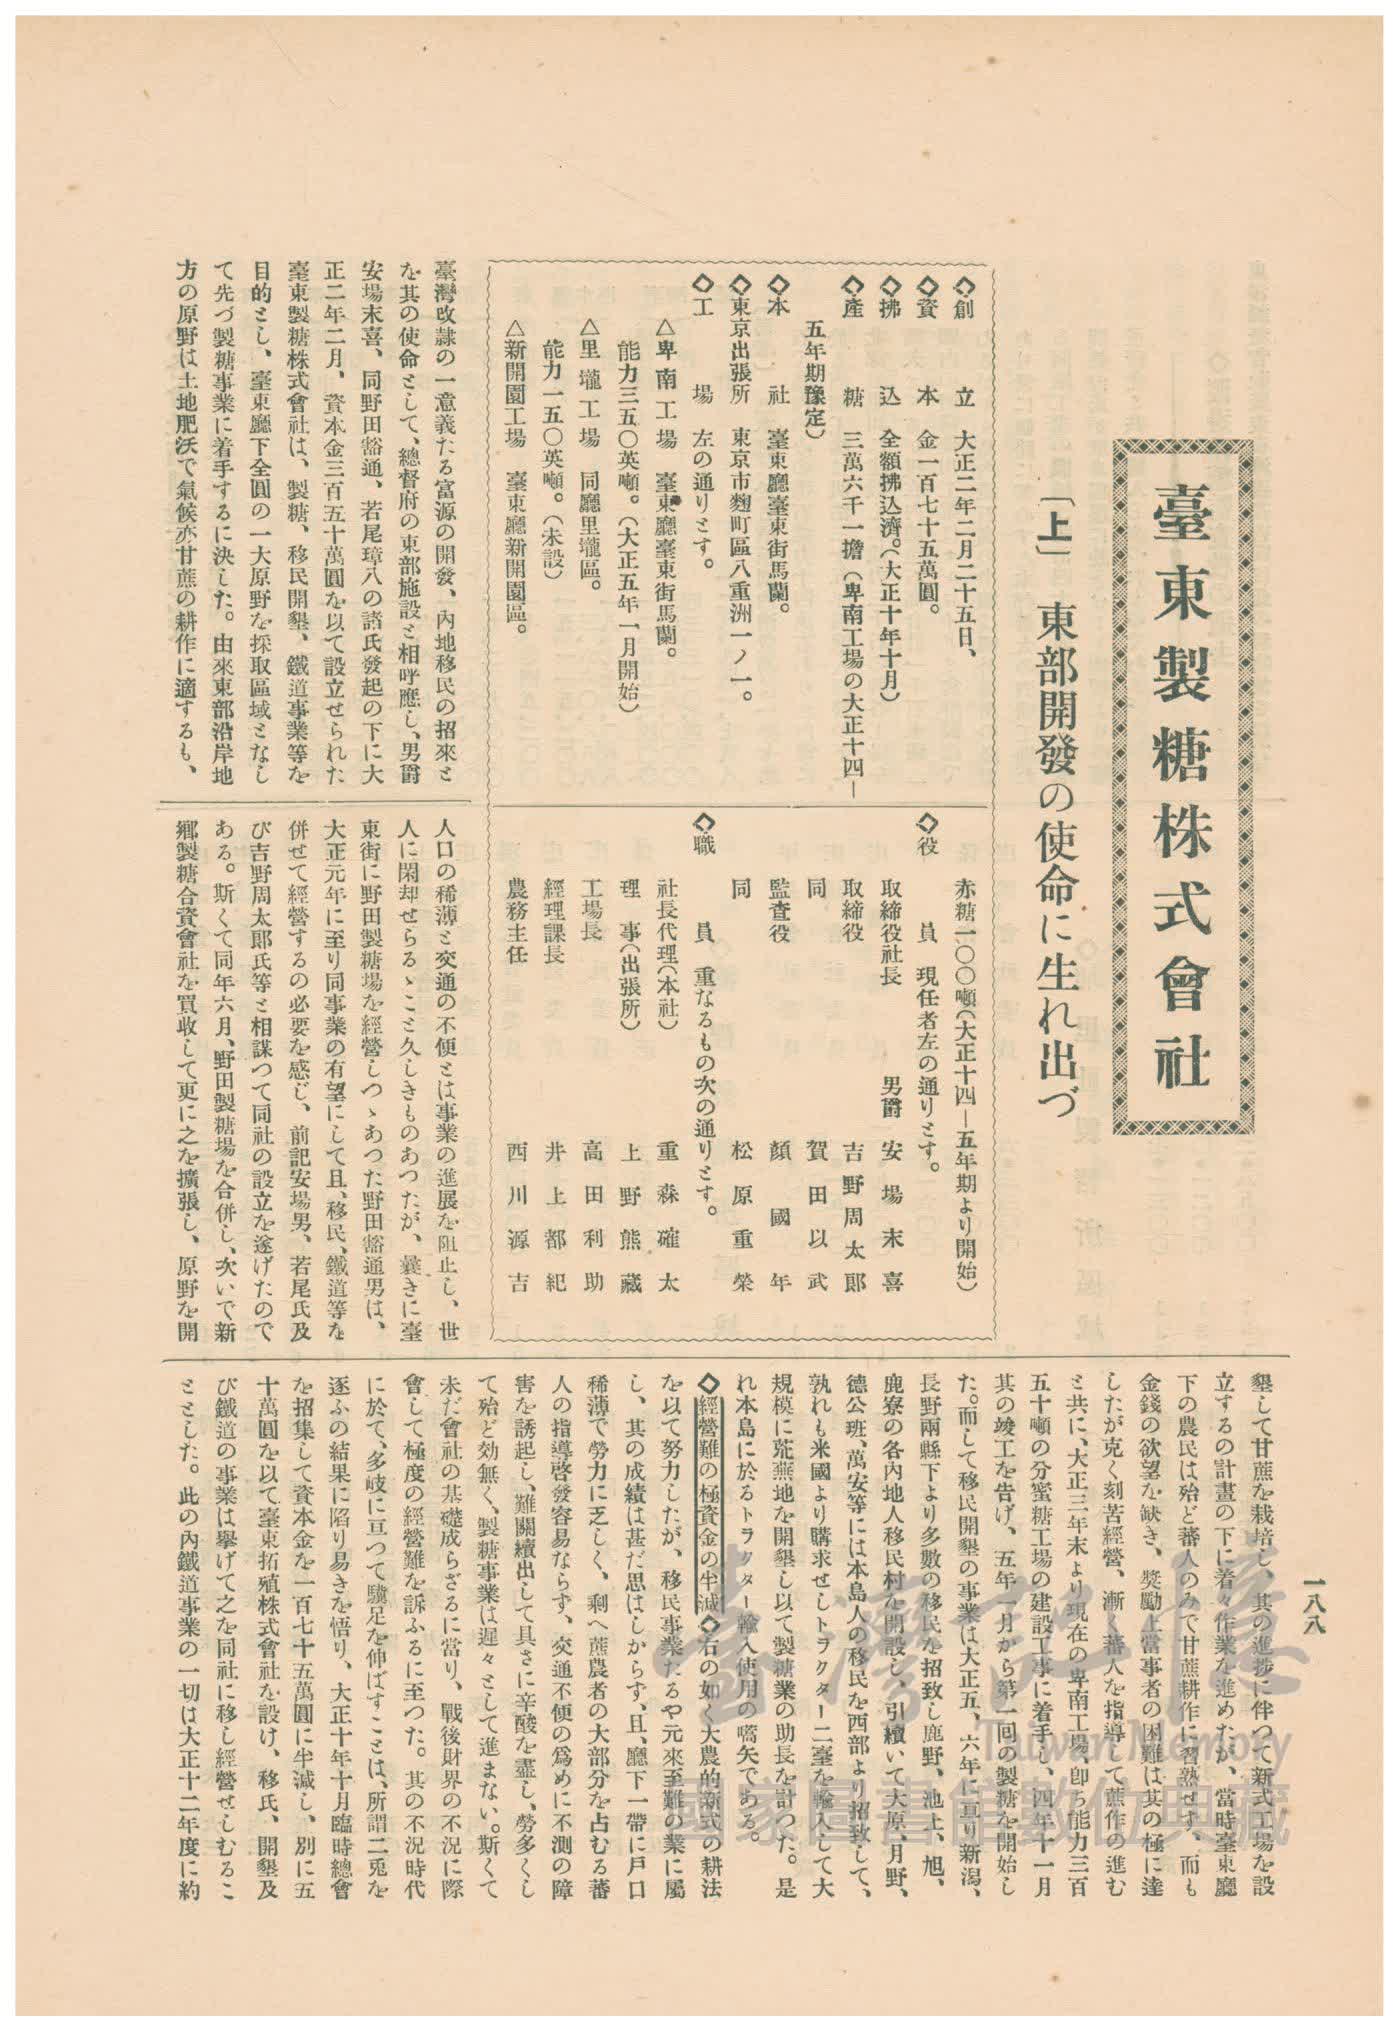 臺東製糖株式會社
〔上〕 東部開發の使命に生れ出づ
◇創立 大正二年二月二十五日、
◇資本 金一百七十五萬圓。
◇拂込 全額拂込濟。(大正十年十月)
◇產糖 三萬六千一擔(卑南工場の大正十四—
五年期豫定)
◇本社 臺東廳臺東街馬蘭。
◇東京出張所 東京市麴町區八重洲一ノ一。
◇工場 左の通りとす。
△卑南工場 臺東廳臺東街馬蘭。
能力三五〇英噸。(大正五年一月開始)
△里壠工場 同廳里壠區。
能力一五〇英噸。(未設)
△新開園工場 臺東廳新開園區。
赤糖一〇〇噸(大正十四—五年期より開始)
◇役員 現任者左の通りとす。
取締役社長 男爵 安場末喜
取締役 吉野周太郎
同 賀田以武
監査役 顏國年
同 松原重榮
◇職員 重なるもの次の通りとす。
社長代理(本社) 重森確太
理事(出張所) 上野熊藏
工場長 高田利助
經理課長 井上都紀
農務主任 西川源吉
臺灣改隷の一意義たる富源の開發、內地移民の招來と
を其の使命として、總督府の東部施設と相呼應し、男爵
安場末喜、同野田豁通、若尾璋八の諸氏發起の下に大
正二年二月、資本金三百五十萬圓を以て設立せられた
臺東製糖株式會社は、製糖、移民開墾、鐵道事業等を
目的とし、臺東廳下全圓の一大原野を採取區域となし
て先づ製糖事業に着手するに決した。由來東部沿岸地
方の原野は土地肥沃で氣候亦甘蔗の耕作に適するも、
人口の稀薄と交通の不便とは事業の進展を阻止し、世
人に閑却せらるゝこと久しきものあつたが、曩きに臺
東街に野田製糖場を經營しつゝあつた野田豁通男は、
大正元年に至り同事業の有望にして且、移民、鐵道等を
併せて經營するの必要を感じ、前記安場男、若尾氏及
び吉野周太郎氏等と相謀つて同社の設立を遂げたので
ある。斯くて同年六月、野田製糖場を合併し、次いで新
鄉製糖合資會社を買收して更に之を擴張し、原野を開
墾して甘蔗を栽培し、其の進捗に伴つて新式工場を設
立するの計畫の下に着々作業を進めたが、當時臺東廳
下の農民は殆ど蕃人のみで甘蔗耕作に習熟せず、而も
金錢の欲望を缺き、獎勵上當事者の困難は其の極に達
したが克く刻苦經營、漸く蕃人を指導して蔗作の進む
と共に、大正三年末より現在の卑南工場、卽ち能力三百
五十噸の分蜜糖工場の建設工事に着手し、四年十一月
其の竣工を告げ、五年一月から第一回の製糖を開始し
た。而して移民開墾の事業は大正五、六年に亘り新潟、
長野兩縣下より多數の移民を招致し鹿野、池上、旭、
鹿寮の各內地人移民村を開設し、引續いて大原、月野、
德公班、萬安等には本島人の移民を西部より招致して、
孰れも米國より購求せしトラクター二臺を輸入して大
規模に荒蕪地を開墾し以て製糖業の助長を計つた。是
れ本島に於るトラクター輸入使用の嚆矢である。
◇經營難の極資金の半減◇右の如く大農的新式の耕法
を以て努力したが、移民事業たるや元來至難の業に屬
し、其の成績は甚だ思はしからず、且、廳下一帶に戶口
稀薄で勞力に乏しく、剩へ蔗農者の大部分を占むる蕃
人の指導啓發容易ならず、交通不便の爲めに不測の障
害を誘起し、難關續出して具さに辛酸を盡し、勞多くし
て殆ど効無く、製糖事業は遲々として進まない。斯くて
未だ會社の基礎成らざるに當り、戰後財界の不況に際
會して極度の經營難を訴ふるに至つた。其の不況時代
に於て、多岐に亘つて驥足を伸ばすことは、所謂二兎を
逐ふの結果に陷り易きを悟り、大正十年十月臨時總會
を招集して資本金を一百七十五萬圓に半減し、別に五
十萬圓を以て臺東拓殖株式會社を設け、移民、開墾及
び鐵道の事業は擧げて之を同社に移し經營せしむるこ
ととした。此の內鐵道事業の一切は大正十二年度に約
一八八
臺灣記憶
Taiwan Memory
國家圖書館數位典藏